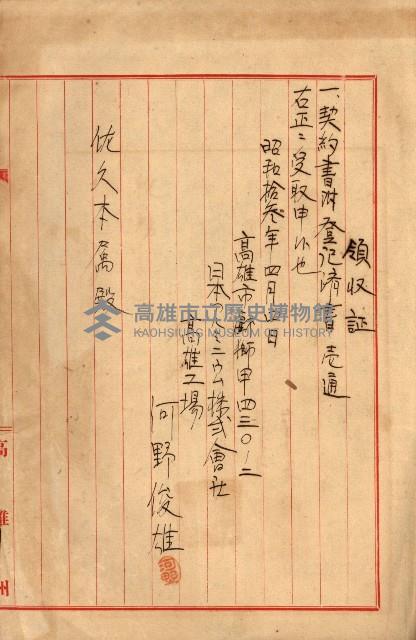 領収証
一、契約書附登記済書壱通
右正ニ受取申候也
昭和拾参年四月五日
高雄市戯獅甲四三〇ノ二
日本アルミニウム株式會社
高雄工場
河野俊雄
河野
佐久本 殿
高雄州
高雄市立歷史博物館
KAOHSIUNG MUSEUM OF HISTORY